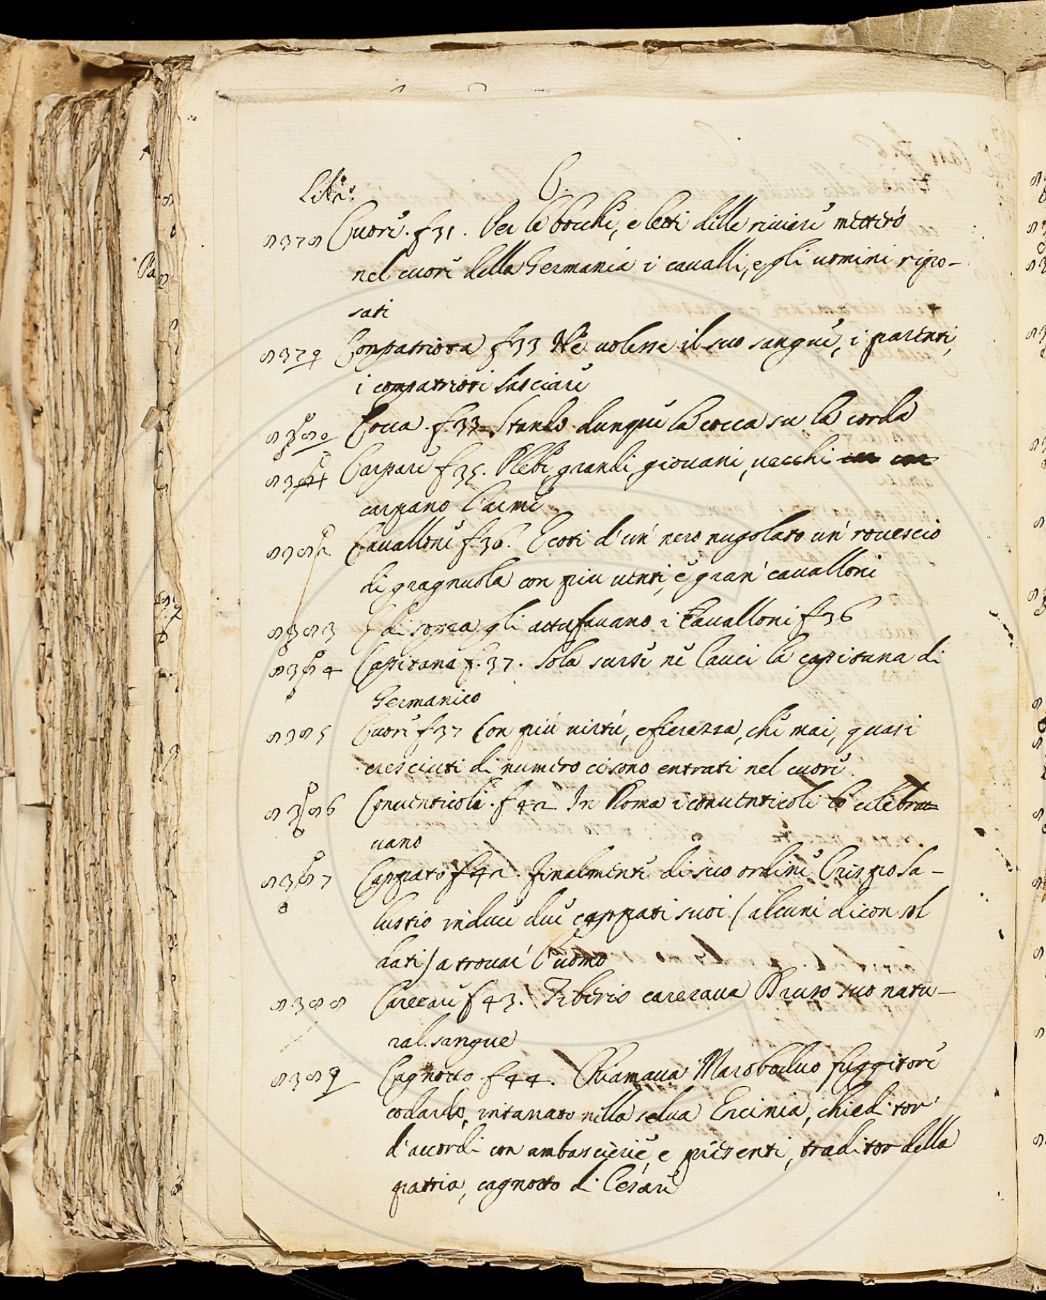 C.
8378 Cuore. f 31. Per le bocche, e letti delle riviere metterò
nel cuore della Germania i cavalli, e gli uomini ripo-
sati
8379 Compatriota f 33 Nè volesse il suo sangue, i parenti,
i compatrioti lasciare
Cocca. f 33. Stando dunque la cocca su la corda
Carpare f 35. Plebe, grandi, giovani, vecchi
carpano l'armi
Cavalloni f 36. Ecoti d'un nero nugolato un rovescio
di gragnuola con piu venti, e gran cavalloni
8383 di sopra gli attufavano i Cavalloni f 36
8384 Capitana f. 37. Sola surse ne Cauci la capitana di
Germanico
8385 Cuore f 37 Con più virtù, e fierezza, che mai, quasi
cresciuti di numero ci sono entrati nel cuore.
8386 Conventicole. f 42 In Roma i conventicoli
vano
8387 Cappato f 42. Finalmente di suo ordine Crispo Sa-
lustio induce due cappati suoi / alcuni dicon sol
dati / a trovar l'uomo
8388 Carezare f 43. Tiberio carezava Druso suo natu-
ral sangue
8389 Cagnotto f 44. Chiamava Maroboduo fuggitore
codardo, intanato nella selva Ercinia, chieditor
d'accordi con ambascerie, e presenti, traditor della
patria, cagnotto di Cesare